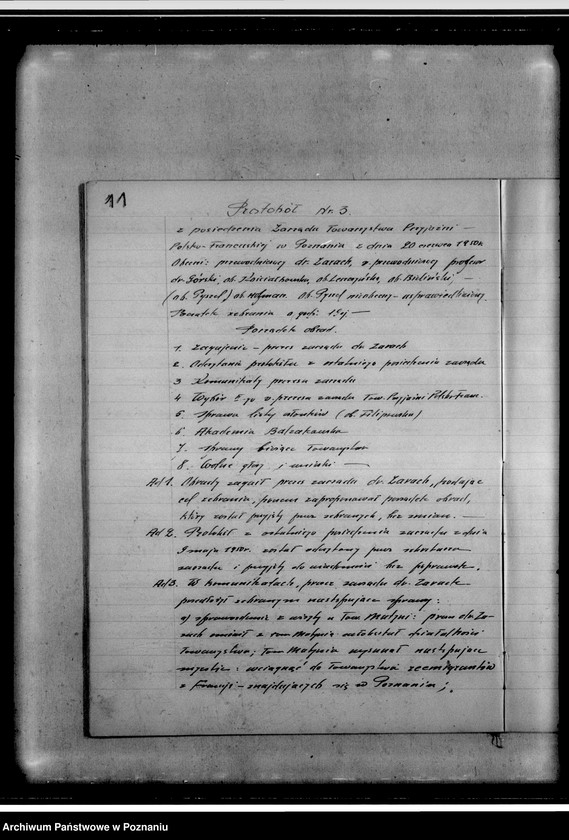 11
Protokół Nr. 3.
z posiedzenia Zarządu Towarzystwa Przyjaźni
Polsko-Francuskiej w Poznaniu z dnia 20 czerwca 1950r.
Obecni: przewodniczący dr. Zarach, v. przewodniczący profesor
dr. Górski, ob. ob. ob.
(ob. ) ob. Hofman. ob. nieobecny - usprawiedliwiony
Początek zebrania o godz.
Porządek obrad.
1. Zagajenie - prezes zarządu dr. Zarach
2. Odczytanie protokółu z ostatniego posiedzenia zarządu
3 Komunikaty prezesa zarządu
4 Wybór 5-go v. prezesa zarządu Tow. Przyjaźni Polsko-Franc.
5 Sprawa listy członków (ob. Filipowska)
6. Akademia Balzakowska
7. Sprawy bieżące Towarzystwa
8. Wolne głosy i wnioski
Ad 1. Obrady zagaił prezes zarządu dr. Zarach, podając
cel zebrania, poczem zaproponował porządek obrad,
który został przyjęty przez zebranych, bez zmian.
Ad 2. Protokół z ostatniego posiedzenia zarządu z dnia
9 maja 1950r. został odczytany przez sekretarza
zarządu i przyjęty do wiadomości bez poprawek.
Ad 3. W komunikatach, prezes zarządu dr. Zarach
przedłożył zebranym następujące sprawy:
a) sprawozdanie z wizyty u Tow. : prezes dr. Za-
rach omówił z tow. całokształt działalności
Towarzystwa; Tow. wysunął następujące
: wciągnąć do Towarzystwa reemigrantów
z Francji - znajdujących się w Poznaniu;
Archiwum Państwowe w Poznaniu